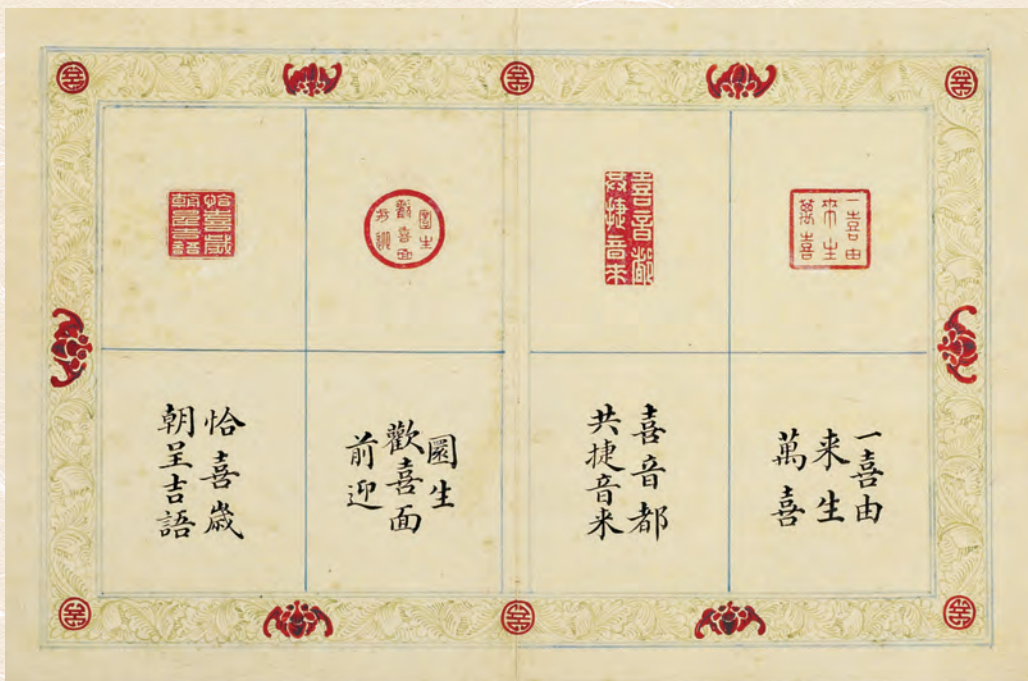 一喜由
來生
萬喜
喜音都
共捷音来
園生
歡喜面
前迎
恰喜歲
朝呈吉語
一喜由
来生
萬喜
喜音都
共捷音来
園生
歡喜面
前迎
恰喜歲
朝呈吉語